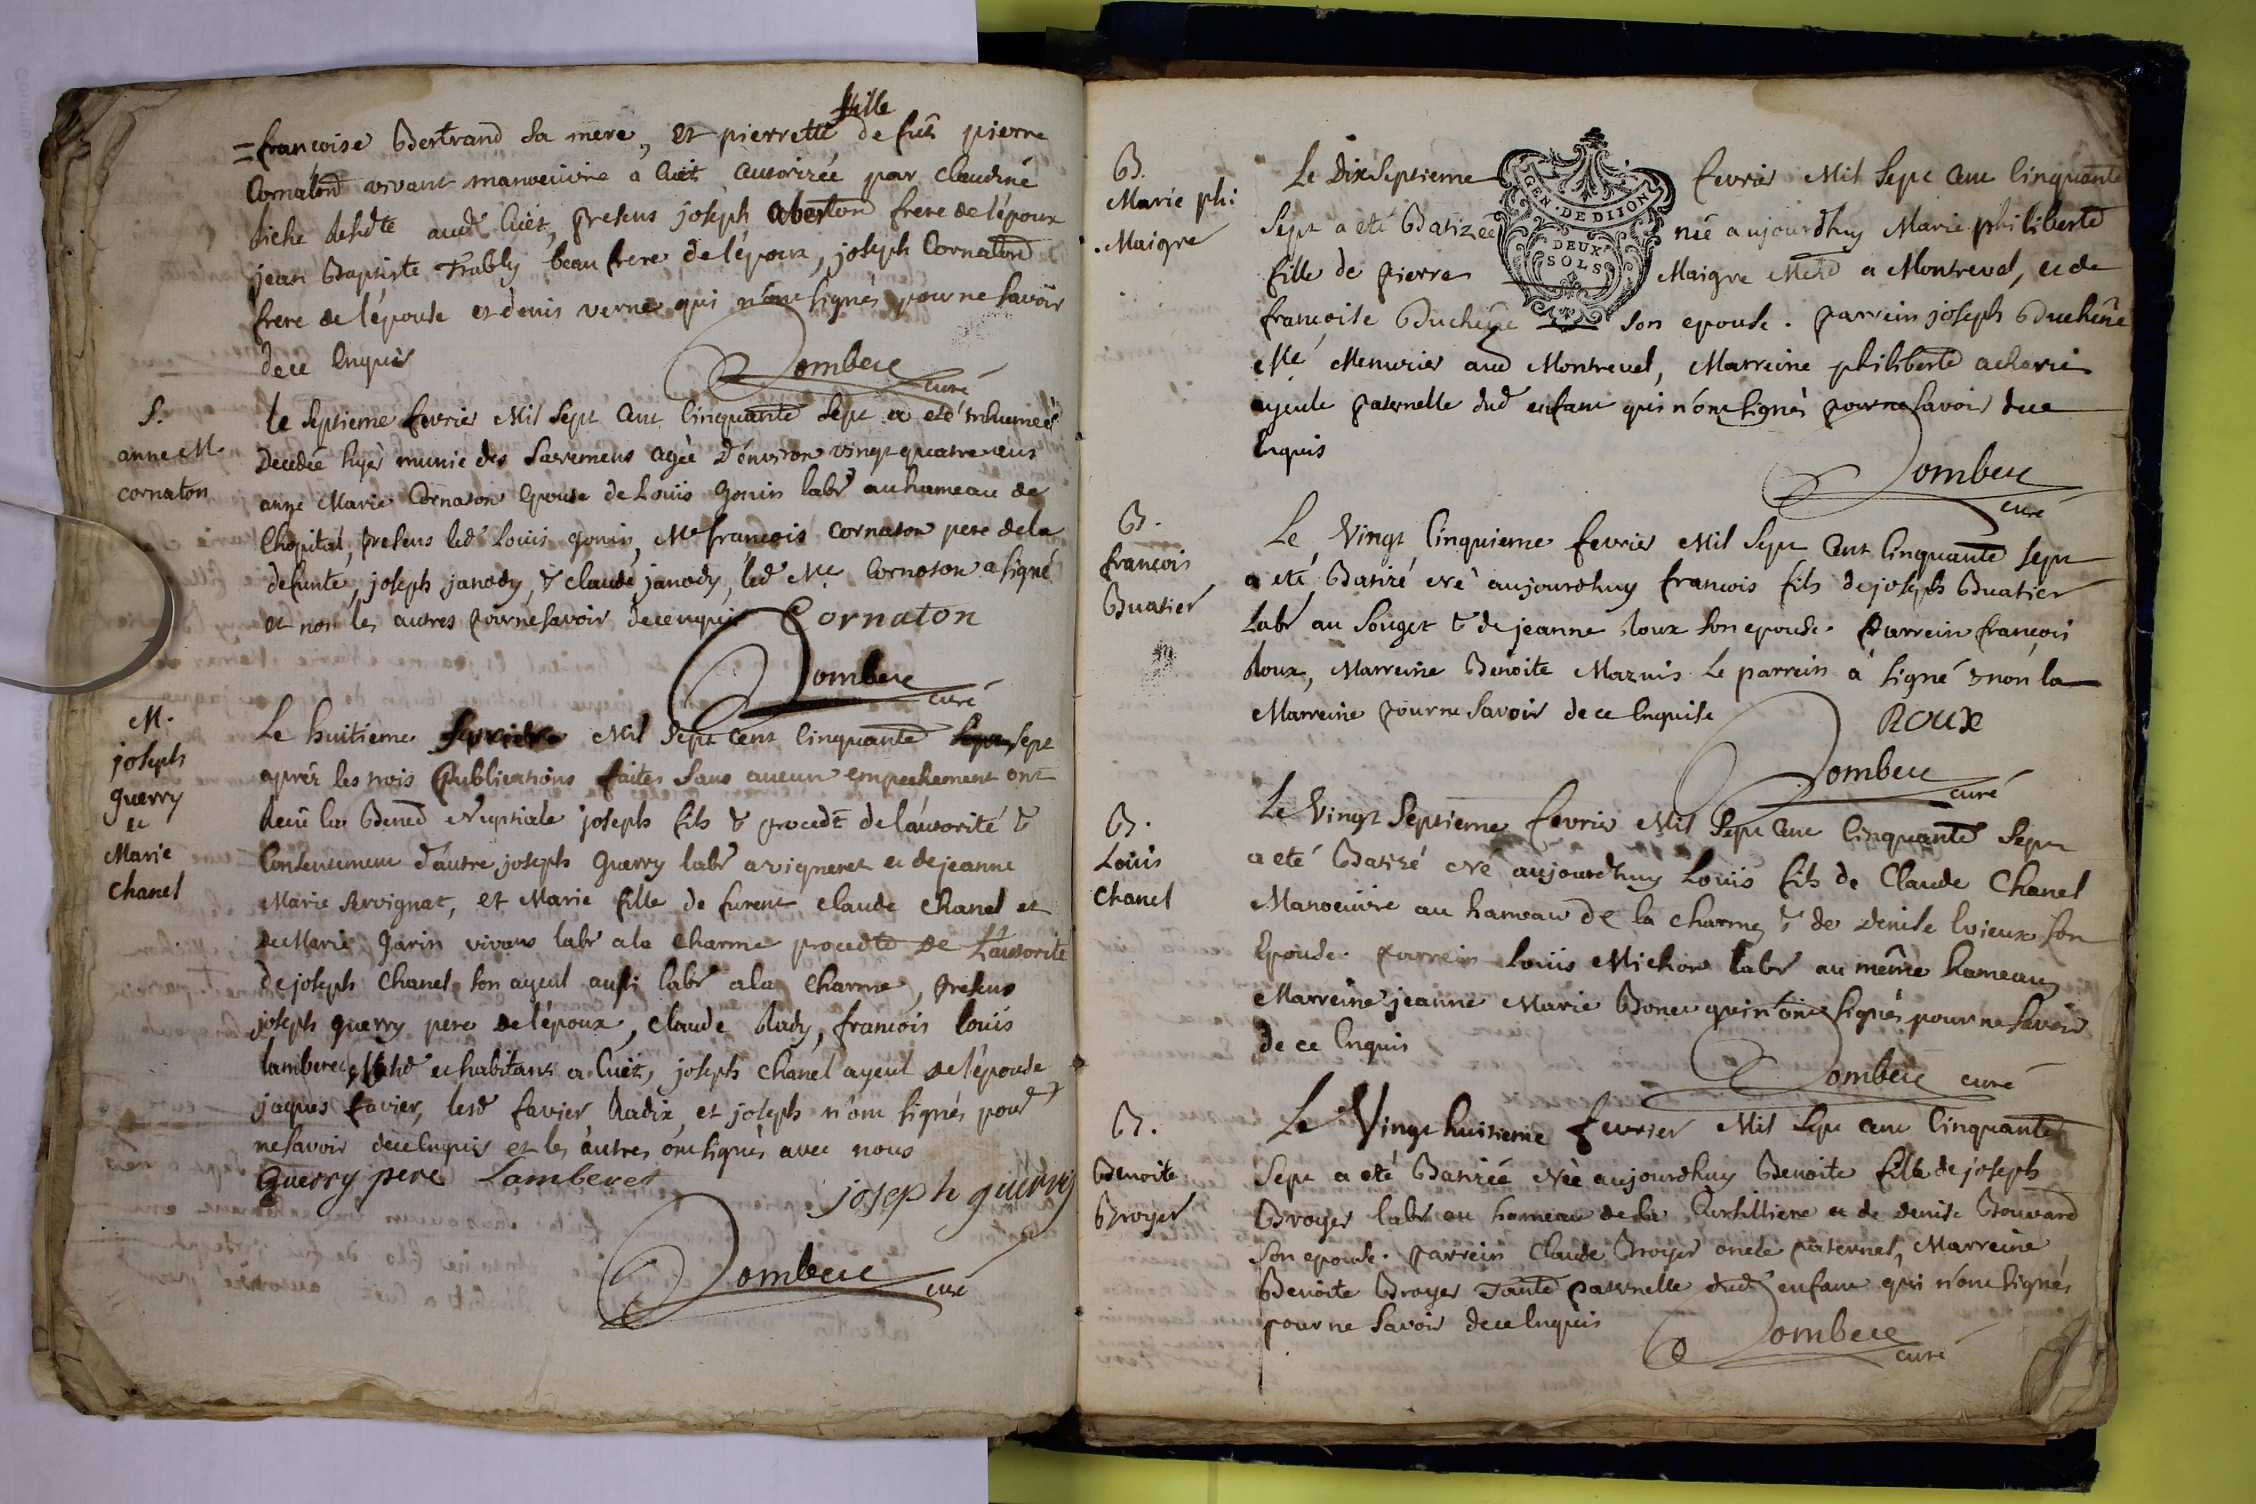 fille
=francoise Bertrand sa mere, et pierrette de fut pierre
Cornaton vivant manoeuvre a Cuët autorizée par claudine
aud Cuët, presens joseph frere de l'époux
jean Baptiste Frably beau frere de l'époux, joseph Cornaton
frere de l'épouse et denis verne qui n'ont signés pour ne savoir
de ce Enquis
Dombeÿ curé
S.
anne M.
cornaton
le septieme fevrier Mil sept Cent Cinquante sept a eté inhumeé
decedée hyer munie des sacremens agée d'environ vingt quatre
anne Marie Cornaton Epouse de Loüis gonin labr au hameau de
l'hopital, presens led Louis gonin, Me francois cornaton pere de la
defunte, joseph janody, & claude janody, led Me Cornaton a signé
et non les autres pour ne savoir de ce enquis Cornaton
curé
M.
joseph
guerry
et
Marie
chanel
Le huitieme Mil Sept Cent Cinquante sept
aprés les trois publications faites sans aucun empechement ont
la Bened Nuptiale joseph fils & procedt de l'autorité &
Consentement d'autre joseph guerry labr a vigneret et de jeanne
Marie Arvignat, et Marie fille de furent claude chanel et
de Marie garin vivans labr a la Charme procedte de L'autorité
de joseph chanel son ayeul aussi labr a la Charme, presens
joseph guerry pere de l'époux, claude francois loüis
lamberet et habitans a Cuët, joseph chanel ayeul de l'épouse
jaques favier, lesd favier et joseph n'ont signés pour
ne savoir de ce Enquis et les autres ont signés avec nous
Guerry pere Lamberet joseph guerry
curé
B.
Marie phi:
Maigre
GEN · DE DIJON
DEUX SOLS
Le Dix Septieme fevrier Mil Sept Cent Cinquante
Sept a eté Batizée née aujourdhuy Marie philiberte
fille de pierre Maigre Mchd a Montrevel, et de
francoise Duchêne son epouse. parrein joseph Duchêne
Me Menuizier aud Montrevel, Marreine philiberte
ayeule paternelle dud enfant qui n'ont signés pour ne savoir de ce
Enquis
curé
B.
francois
Buatier
Le Vingt Cinquieme fevrier Mil Sept Cent Cinquante sept
a eté Batizé Né aujourdhuy francois fils de joseph Buatier
Labr au Souget & de jeanne Roux son epouse. Parrein francois
Roux, Marreine Benoite Mazuis Le parrein a signé & non la
Marreine pour ne savoir de ce Enquise
ROUX
curé
B.
Loüis
chanel
Le Vingt Septieme fevrier Mil Sept Cent Cinquante Sept
a eté Batizé Né aujourdhuy Loüis fils de Claude Chanel
Manoeuvre au hameau de la charme & de Denise loieux son
Epouse. parrein Loüis Michon labr au même hameau,
Marreine jeanne Marie Bonet qui n'ont signés pour ne savoir
de ce Enquis
curé
B.
Benoite
Broyer
Le Vingt huitieme fevrier Mil Sept Cent Cinquante
Sept a eté Batizée Née aujourdhuy Benoite fille de joseph
Broyer labr au hameau de la et de denise Bouvard
son epouse. parrein Claude Broyer oncle paternel, Marreine
Benoite Broyer Tante paternelle dud enfant qui n'ont signés
pour ne savoir de ce Enquis
curé